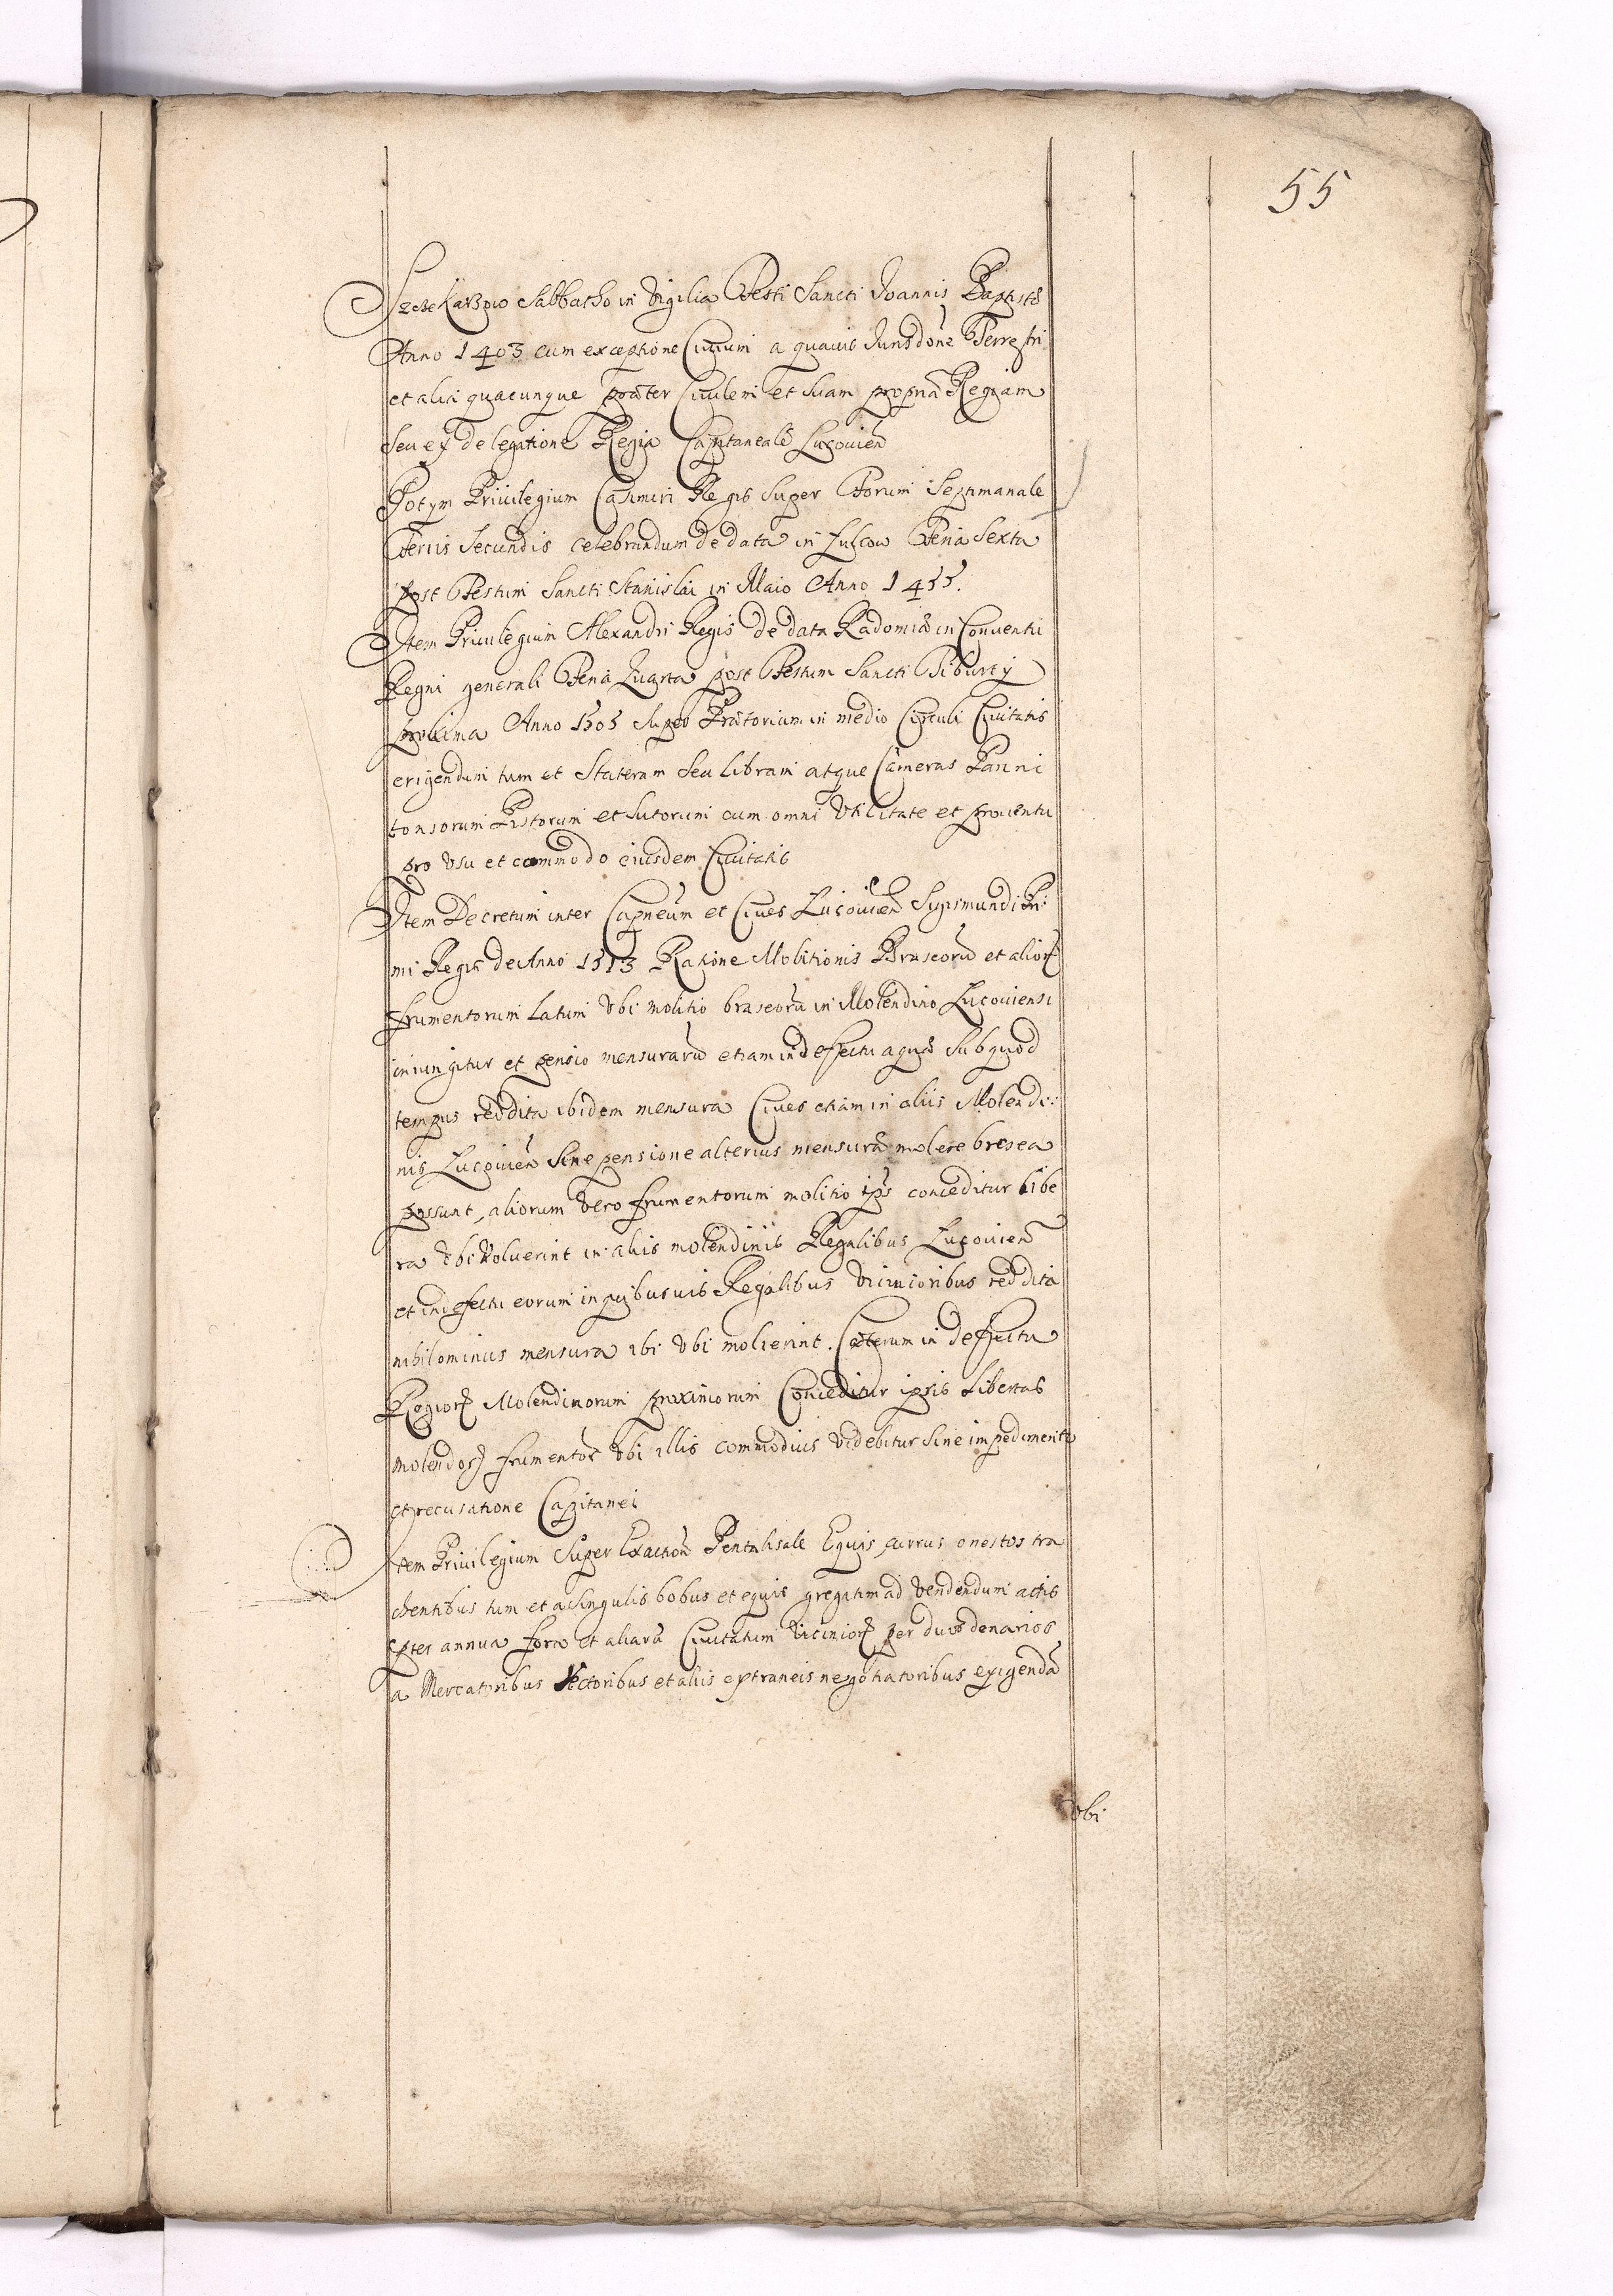 55
Szczekarzow Sabbatho in Vigilia Festi Sancti Joannis Baptistæ
Anno 1403 cum exceptione Ciuium a quauis Jurisdone Terrestri
et alia quacunque præter Ciuilem et Suam propriã Regiam
seu ex delegatione Regia Capitaneale Lucouien
Potym Priuilegium Casimiri Regis Super Forum Septimanale
Feriis Secundis celebrandum de data in Lucow Feria Sexta
post Festum Sancti Stanislai in Maio Anno 1455.
Item Priuilegium Alexandri Regis de data Radomiæ in Conuentu
Regni generali Feria Quarta post Festum Sancti Tiburty
proxima Anno 1505 Super Prætorium in medio Circuli Ciuitatis
erigendum tum et Stateram Seu libram atque Cameras Panni
tonsorum Pistorum et Sutorum cum omni Vtilitate et prouentu
pro Vsu et commodo eiusdem Ciuitatis
Item Decretum inter Capneum et Ciues Lucouien Sygismundi Pri:
mi Regis de Anno 1513 Ratione Molitionis Braseorũ et alior
frumentorum Latum Vbi molitio braseorũ in Molendino Lucouiensi
iniungitur et pensio mensurarũ etiam in defectu aquæ Sub quod
tempus reddita ibidem mensura Ciues etiam in aliis Molendi:
nis Lucouien Sine pensione alterius mensuræ molere brasea
possunt, aliorum Vero frumentorum molitio ips conceditur libe
ra Vbi Voluerint in aliis molendinis Regalibus Lucouien
et in defectu eorum in quibusuis Regalibus Vicinioribus reddita
nihilominus mensura ibi Vbi molierint. Cæterum in deffectu
Regior Molendinorum proximorum Conceditur ipsis Libertas
molendor frumentor Vbi illis commodius Videbitur Sine impedimento
et recusatione Capitanei
Item Priuilegium Super Exaction Pontalisale Equis currus onustos tra
hentibus tum et a Singulis bobus et equis gregatim ad Vendendum actis
pter annua fora et aliarũ Ciuitatum Vicinior per duos denarios
a Mercatoribus Vectoribus et aliis extraneis negotiatoribus exigendã
Vbi